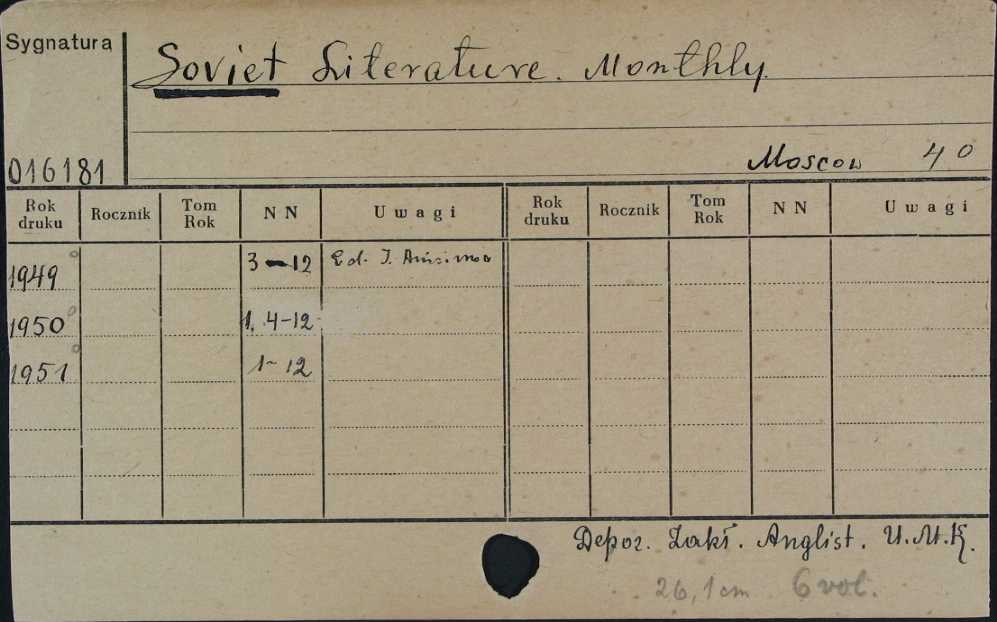 Sygnatura
Soviet Literature. Monthly.
Moscow 4º
016181
Rok druku Rocznik Tom Rok N N Uwagi Rok druku Rocznik Tom Rok N N Uwagi
1949 3-12 Ed. I. Anisimov
1950 1, 4-12
1951 1-12
Depoz. Zakł. Anglist. U.M.K.
26,1 cm 6 vol.